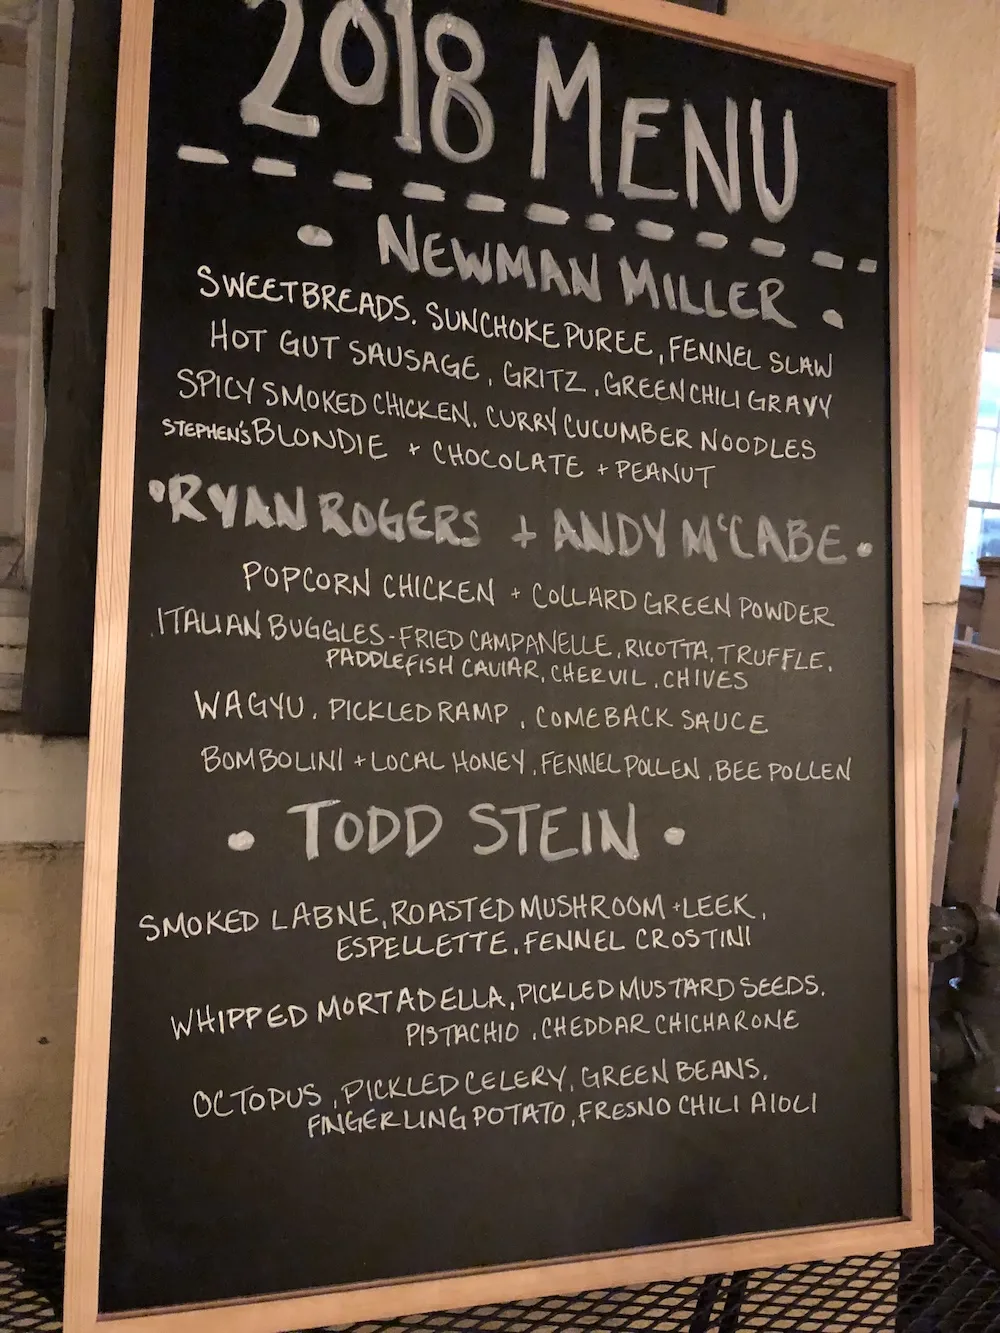 2018 MENU
• NEWMAN MILLER •
SWEETBREADS. SUNCHOKE PUREE, FENNEL SLAW
HOT GUT SAUSAGE, GRITZ, GREEN CHILI GRAVY
SPICY SMOKED CHICKEN, CURRY CUCUMBER NOODLES
STEPHEN'S BLONDIE + CHOCOLATE + PEANUT
• RYAN ROGERS + ANDY McCABE •
POPCORN CHICKEN + COLLARD GREEN POWDER
ITALIAN BUGGLES - FRIED CAMPANELLE, RICOTTA, TRUFFLE,
PADDLEFISH CAVIAR, CHERVIL, CHIVES
WAGYU, PICKLED RAMP, COMEBACK SAUCE
BOMBOLINI + LOCAL HONEY, FENNEL POLLEN, BEE POLLEN
• TODD STEIN •
SMOKED LABNE, ROASTED MUSHROOM + LEEK,
ESPELLETTE, FENNEL CROSTINI
WHIPPED MORTADELLA, PICKLED MUSTARD SEEDS,
PISTACHIO, CHEDDAR CHICHARONE
OCTOPUS, PICKLED CELERY, GREEN BEANS,
FINGERLING POTATO, FRESNO CHILI AIOLI